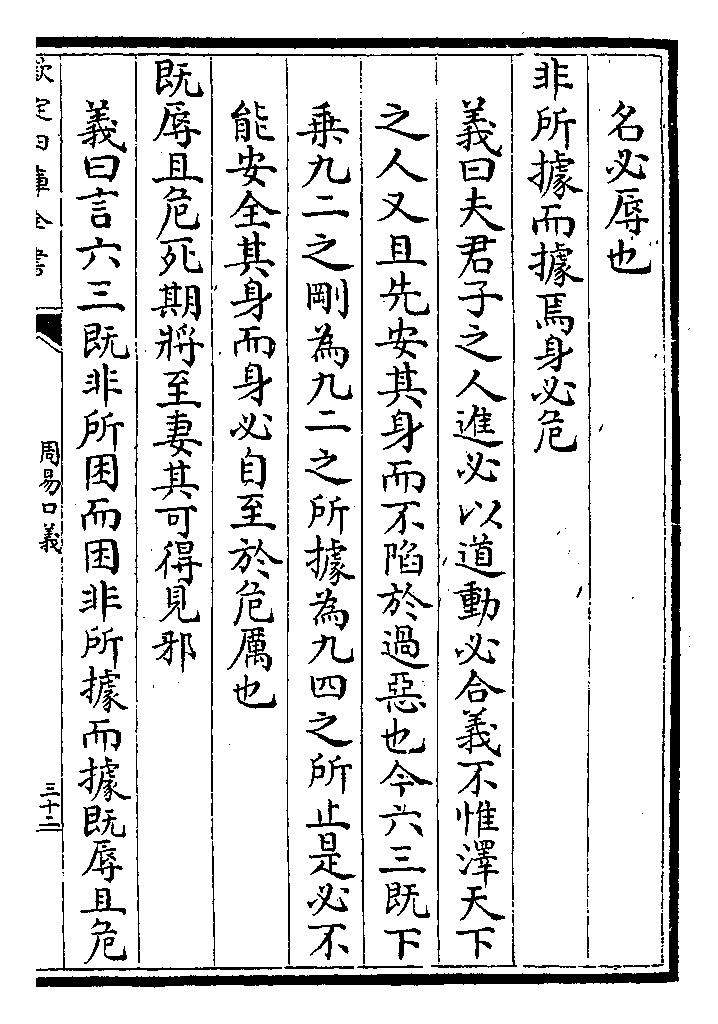 名必辱也
非所據而據焉身必危
義曰夫君子之人進必以道動必合義不惟澤天下
之人又且先安其身而不陷於過惡也今六三既下
乘九二之剛為九二之所據為九四之所止是必不
能安全其身而身必自至於危厲也
既辱且危死期將至妻其可得見邪
義曰言六三既非所困而困非所據而據既辱且危
欽定四庫全書
周易口義
三十二